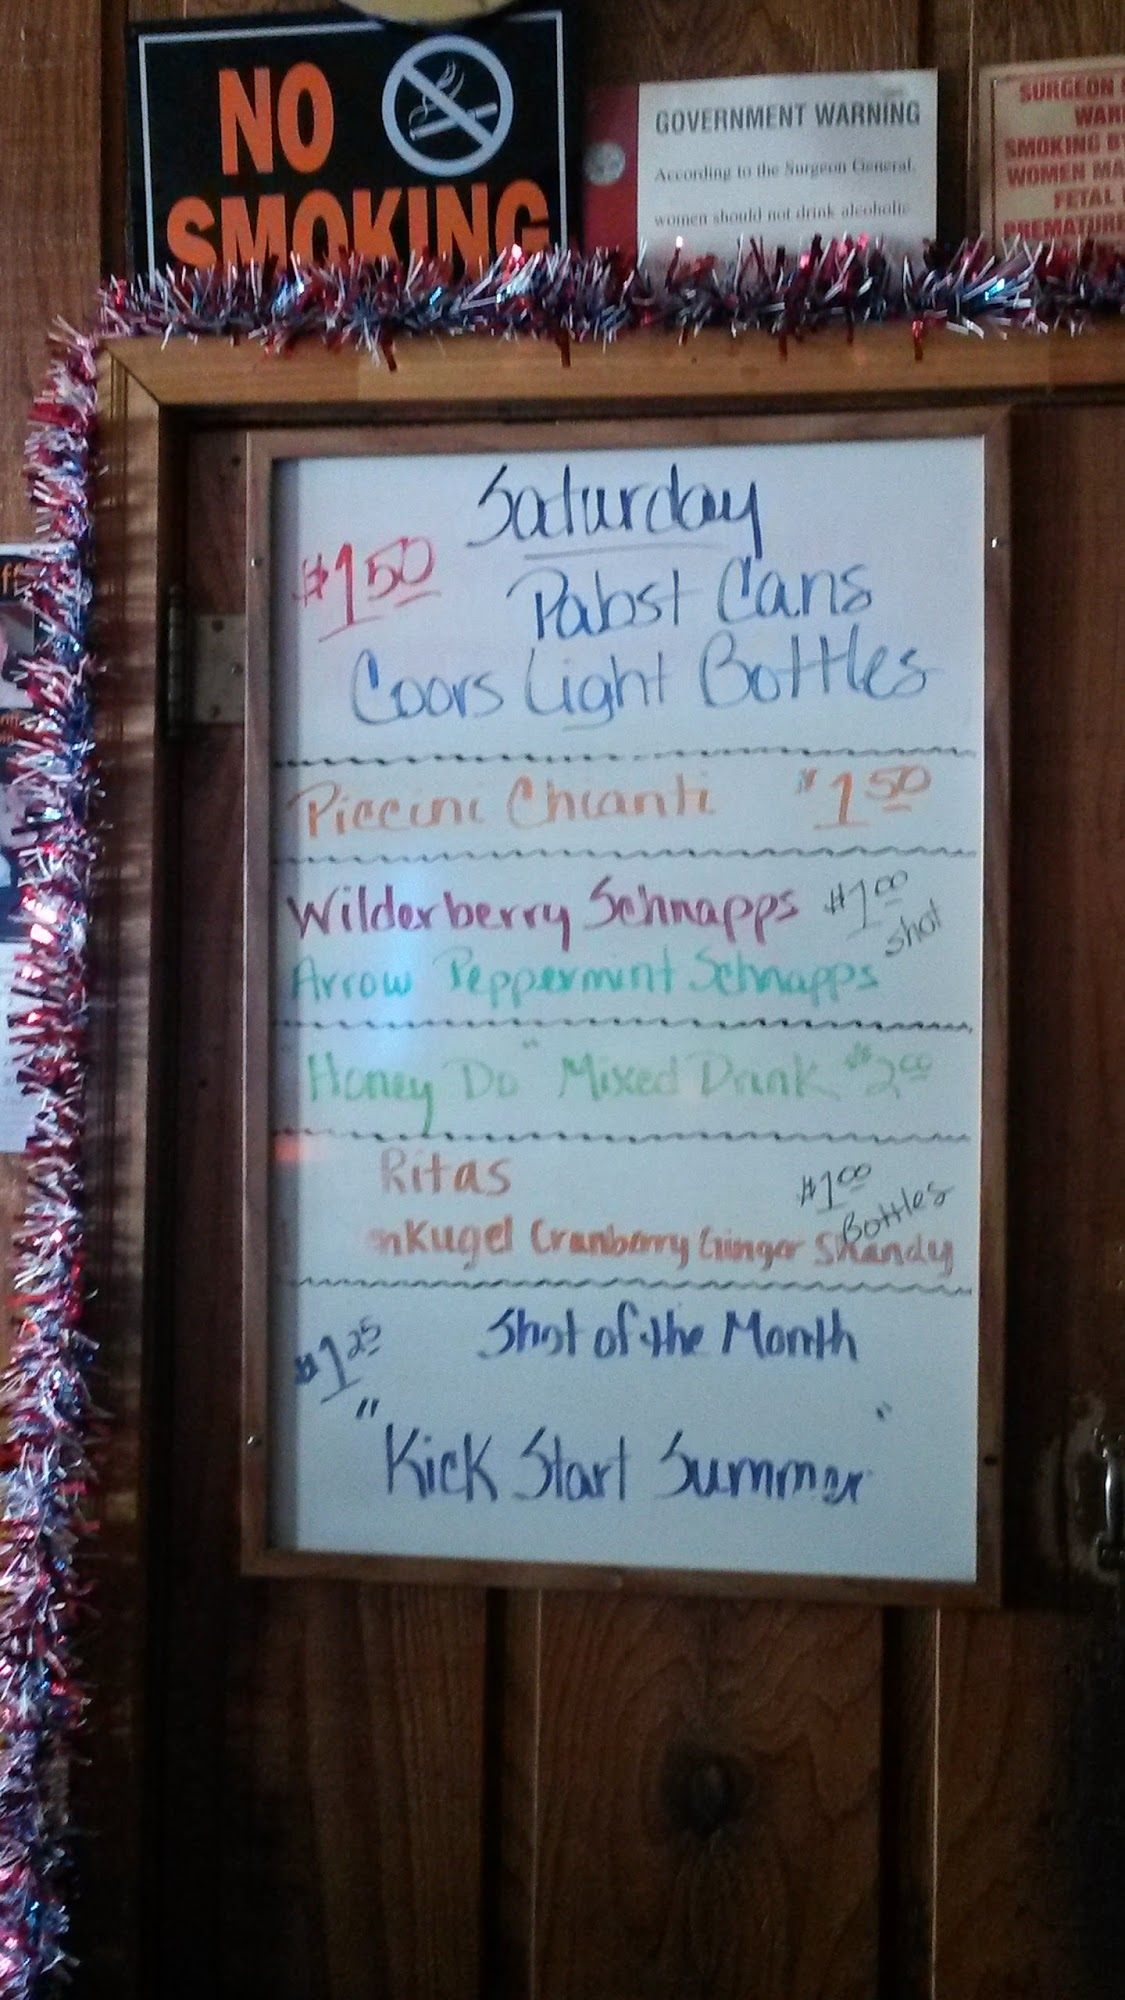 NO
SMOKING
GOVERNMENT WARNING
According to the Surgeon General,
women should not drink alcoholic
SURGEON
SMOKING
WOMEN
FETAL
PREMATURE
Saturday
$1.50
Pabst Cans
Coors Light Bottles
Piccini Chianti $1.50
Wilderberry Schnapps $1.00
shot
Arrow Peppermint Schnapps
Honey Do" Mixed Drink $2.00
Ritas
$1.00
Bottles
nKugel Cranberry Ginger Shandy
Shot of the Month
$1.25
"Kick Start Summer"